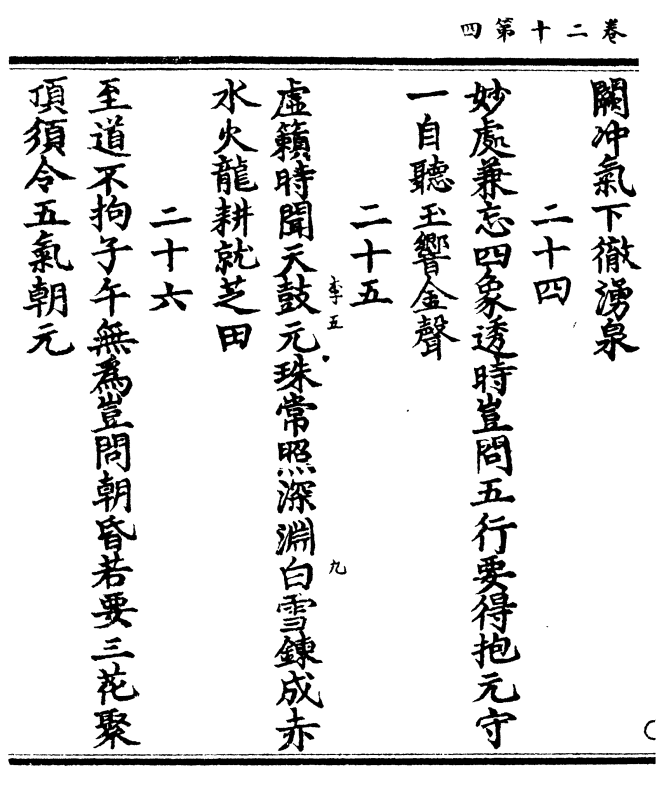 卷二十第四
關冲氣下徹湧泉
二十四
妙處兼忘四象透時豈問五行要得抱元守
一自聽玉響金聲
二十五
虛籟時聞天鼓元珠常照深淵白雪鍊成赤
李五
九
水火龍耕就芝田
二十六
至道不拘子午無為豈問朝昏若要三花聚
頂須令五氣朝元